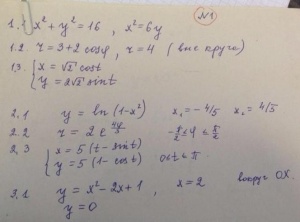 №1
1.1 { x² + y² = 16 , x² = 6y
1.2. r = 3 + 2 cos φ , r = 4 ( вне круга )
1.3. { x = √2 cos t
y = 2√2 sin t
2.1 y = ln (1 - x²) x₁ = -4/5 x₂ = 4/5
2.2 r = 2 e^(4φ/3) -π/2 ≤ φ ≤ π/2
2.3 { x = 5 (t - sin t)
y = 5 (1 - cos t) 0 ≤ t ≤ π
3.1 y = x² - 2x + 1 , x = 2 вокруг OX.
y = 0